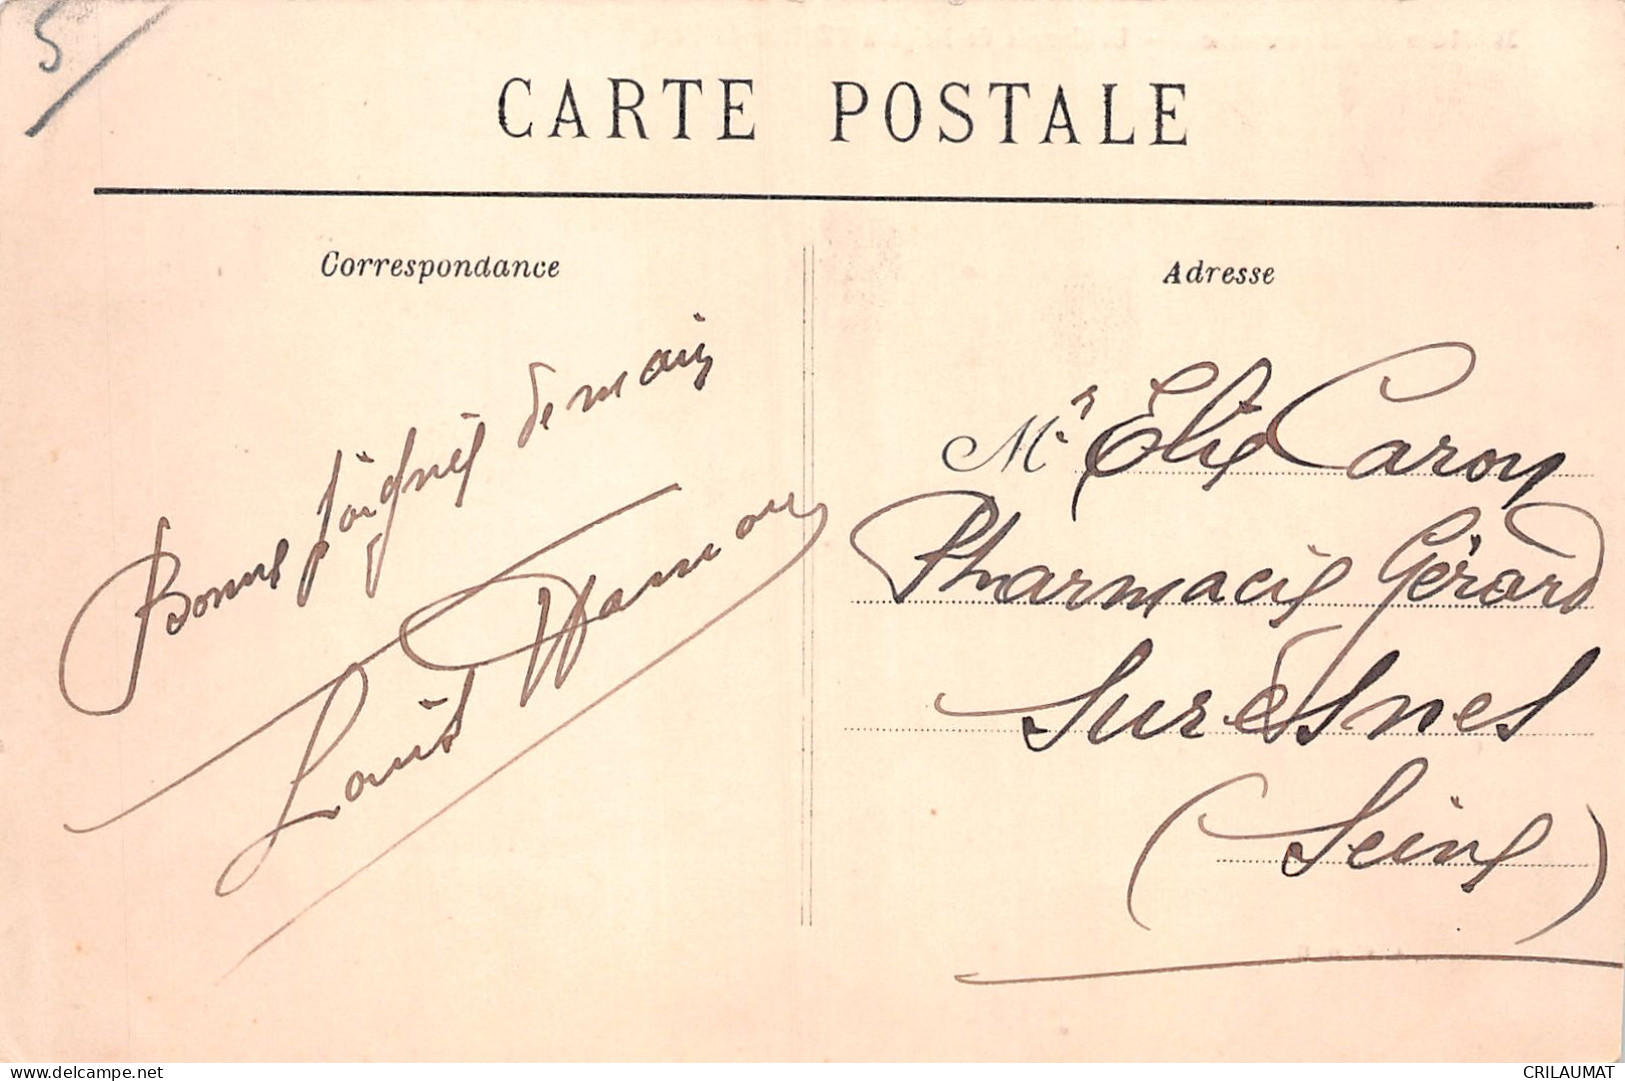 5
CARTE POSTALE
Correspondance
Adresse
Bonne poignée de main
Louis Hamon
Mr. Elie Caron
Pharmacie Gérard
Suresnes
(Seine)
www.delcampe.net
CRILAUMAT